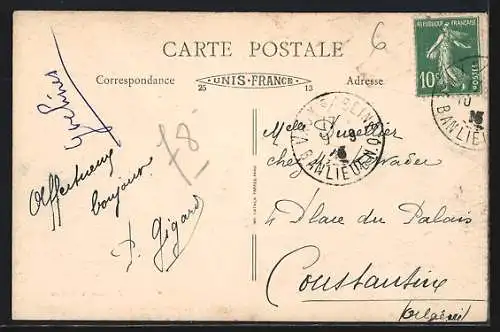 CARTE POSTALE
Correspondance
UNIS-FRANCE
25 13
Adresse
6
RÉPUBLIQUE FRANÇAISE
10c
POSTES
BANLIEUE
BANLIEUE
f8
Affectueux
bonjour
P. Gigard
Melle
chez Mr
4 Place du Palais
Constantine
(Algérie)